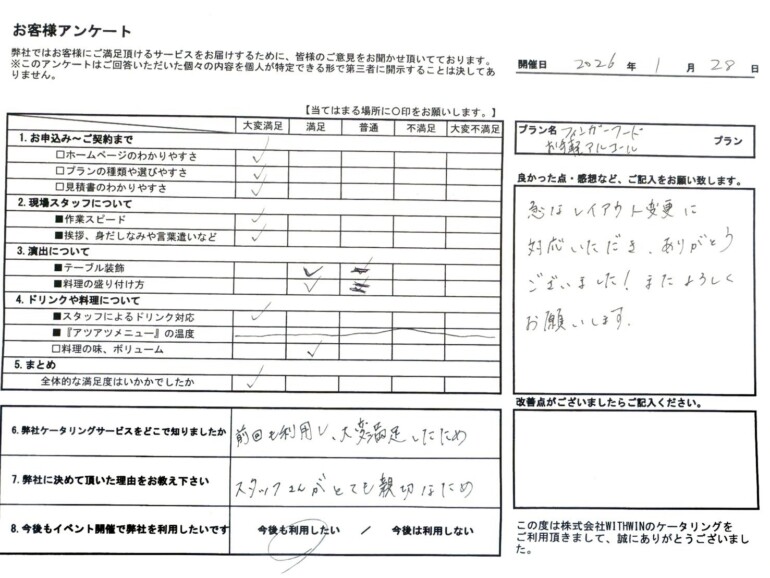 お客様アンケート
弊社ではお客様にご満足頂けるサービスをお届けするために、皆様のご意見をお聞かせ頂いております。
※このアンケートはご回答いただいた個々の内容を個人が特定できる形で第三者に開示することは決してあ
りません。
開催日 2026 年 1 月 28 日
【当てはまる場所に〇印をお願いします。】
大変満足 満足 普通 不満足 大変不満足
1. お申込み～ご契約まで ✓
□ホームページのわかりやすさ ✓
□プランの種類や選びやすさ ✓
□見積書のわかりやすさ ✓
2. 現場スタッフについて
■作業スピード ✓
■挨拶、身だしなみや言葉遣いなど ✓
3. 演出について
■テーブル装飾 ✓
■料理の盛り付け方 ✓
4. ドリンクや料理について
■スタッフによるドリンク対応 ✓
■『アツアツメニュー』の温度
□料理の味、ボリューム ✓
5. まとめ
全体的な満足度はいかかでしたか ✓
6. 弊社ケータリングサービスをどこで知りましたか 前回も利用し、大変満足したため
7. 弊社に決めて頂いた理由をお教え下さい スタッフさんがとても親切なため
8. 今後もイベント開催で弊社を利用したいです 今後も利用したい / 今後は利用しない
プラン名 フィンガーフード
お手軽アルコール プラン
良かった点・感想など、ご記入をお願い致します。
急なレイアウト変更に
対応いただき、ありがとう
ございました！またよろしく
お願いします。
改善点がございましたらご記入ください。
この度は株式会社WITHWINのケータリングを
ご利用頂きまして、誠にありがとうございまし
た。